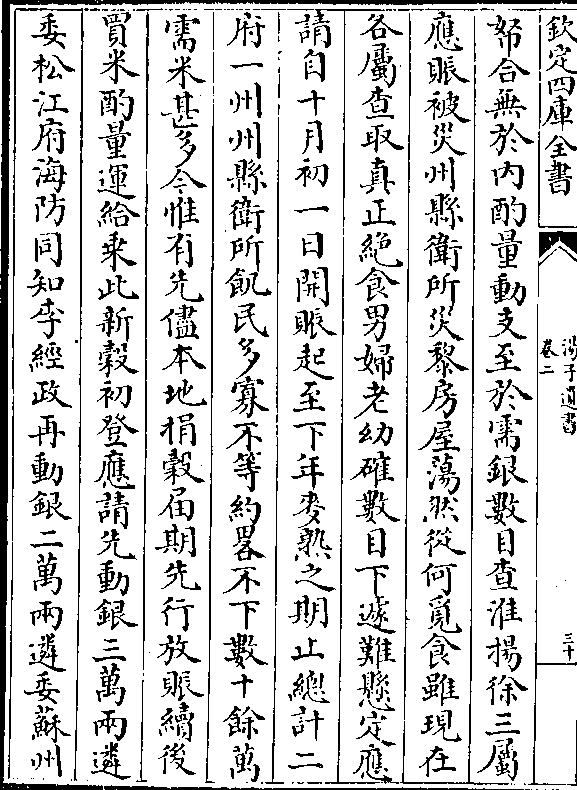 欽定四庫全書
湯子遺書
卷二
三十
帑合無於内酌量動支至於需銀數目查淮揚徐三屬
應賑被災州縣衛所災黎房屋蕩然從何覓食雖現在
各屬查取真正絶食男婦老幼確數目下遽難懸定應
請自十月初一日開賑起至下年麥熟之期止總計二
府一州州縣衛所飢民多寡不等約畧不下數十餘萬
需米甚多今惟有先儘本地捐穀屆期先行放賑續後
買米酌量運給乘此新穀初登應請先動銀三萬兩遴
委松江府海防同知李經政再動銀二萬兩遴委蘇州